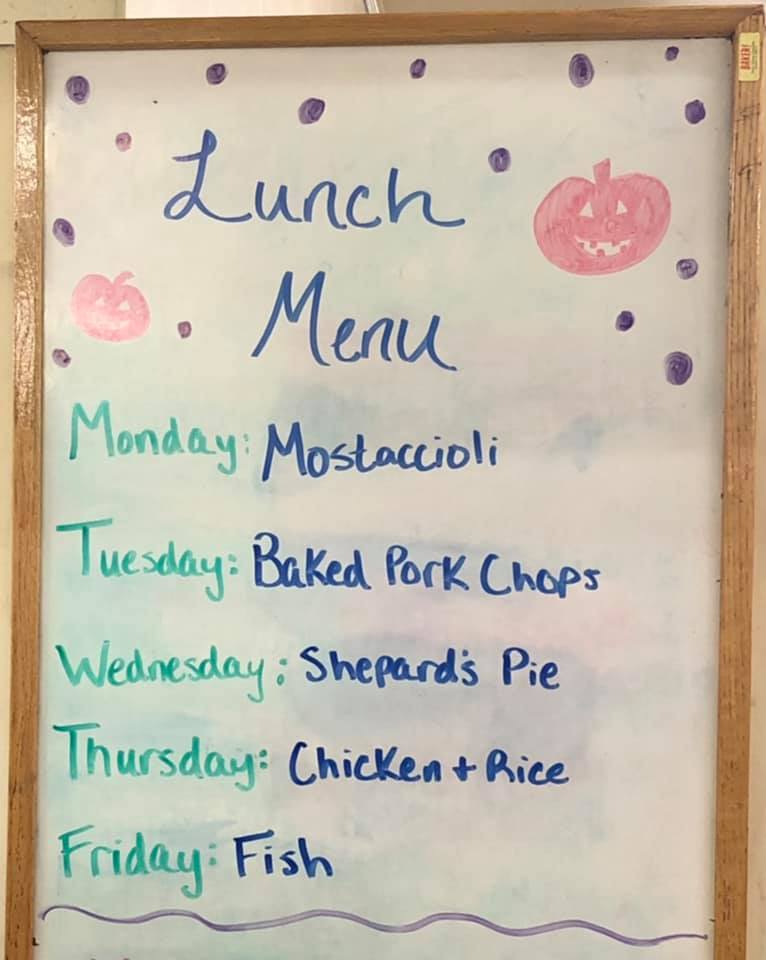 BAKERY
Lunch
Menu
Monday: Mostaccioli
Tuesday: Baked Pork Chops
Wednesday: Shepard's Pie
Thursday: Chicken + Rice
Friday: Fish